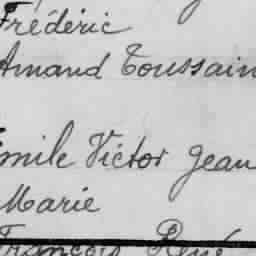 Frédéric
Amand Toussain
Emile Victor Jean
Marie
François René